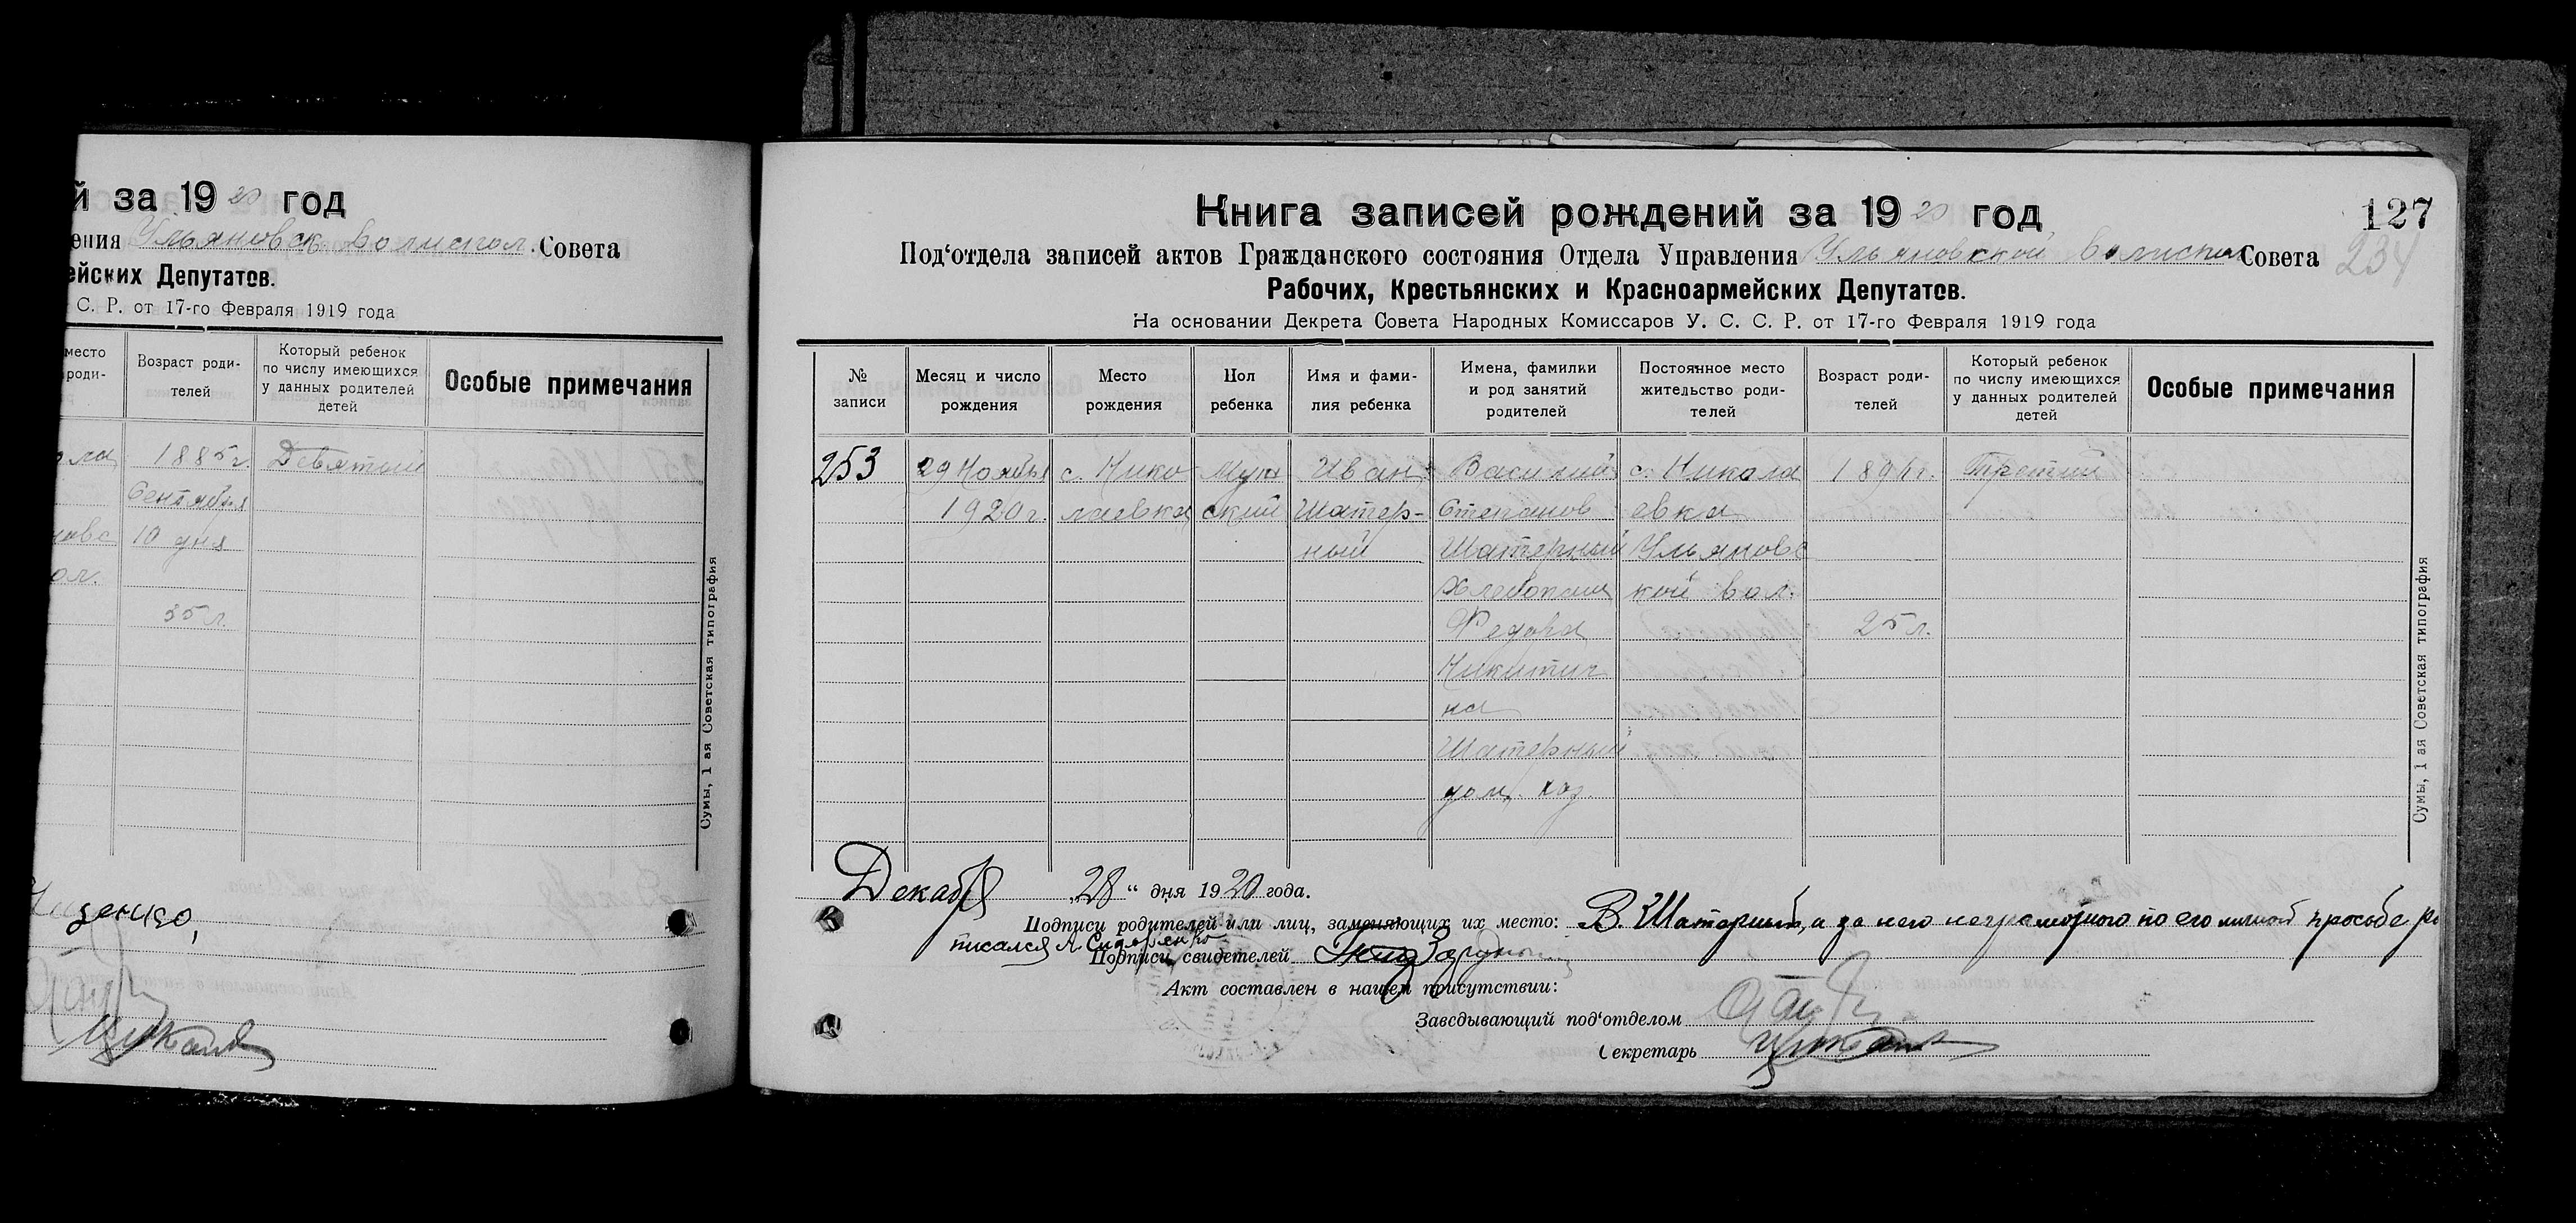 й за 1920 год
ения Ульяновск. волиспол. Совета
ейских Депутатов.
С. Р. от 17-го Февраля 1919 года
место роди-
Возраст роди-
телей
Который ребенок
по числу имеющихся
у данных родителей
детей
Особые примечания
ла 1885 г. Девятый
Сентября
10 дня
ол.
35 л.
Сумы, 1 ая Советская типография
денко,
Книга записей рождений за 1920 год
127
Под'отдела записей актов Гражданского состояния Отдела Управления Ульяновской волиспол Совета
234
Рабочих, Крестьянских и Красноармейских Депутатов.
На основании Декрета Совета Народных Комиссаров У. С. С. Р. от 17-го Февраля 1919 года
№
записи
Месяц и число
рождения
Место
рождения
Пол
ребенка
Имя и фами-
лия ребенка
Имена, фамилии
и род занятий
родителей
Постоянное место
жительство роди-
телей
Возраст роди-
телей
Который ребенок
по числу имеющихся
у данных родителей
детей
Особые примечания
253 29 Ноября с. Нико Муж Иван Василий с. Никола 1894 г. Третий
1920 г. лаевка ский Шатер- Степанов евка
ный Шатерный Ульяновс
Хлебопаш кой вол.
Федора 25 л.
Никитич
на
Шатерный
дом. хоз.
Сумы, 1 ая Советская типография
Декабря „28“ дня 1920 года.
Подписи родителей или лиц, заменяющих их место: В. Шатерный, а за него неграмотного по его личной просьбе рос
писался Л. Сидоренко
Подписи свидетелей
Акт составлен в нашем присутствии:
Заведывающий под'отделом
Секретарь